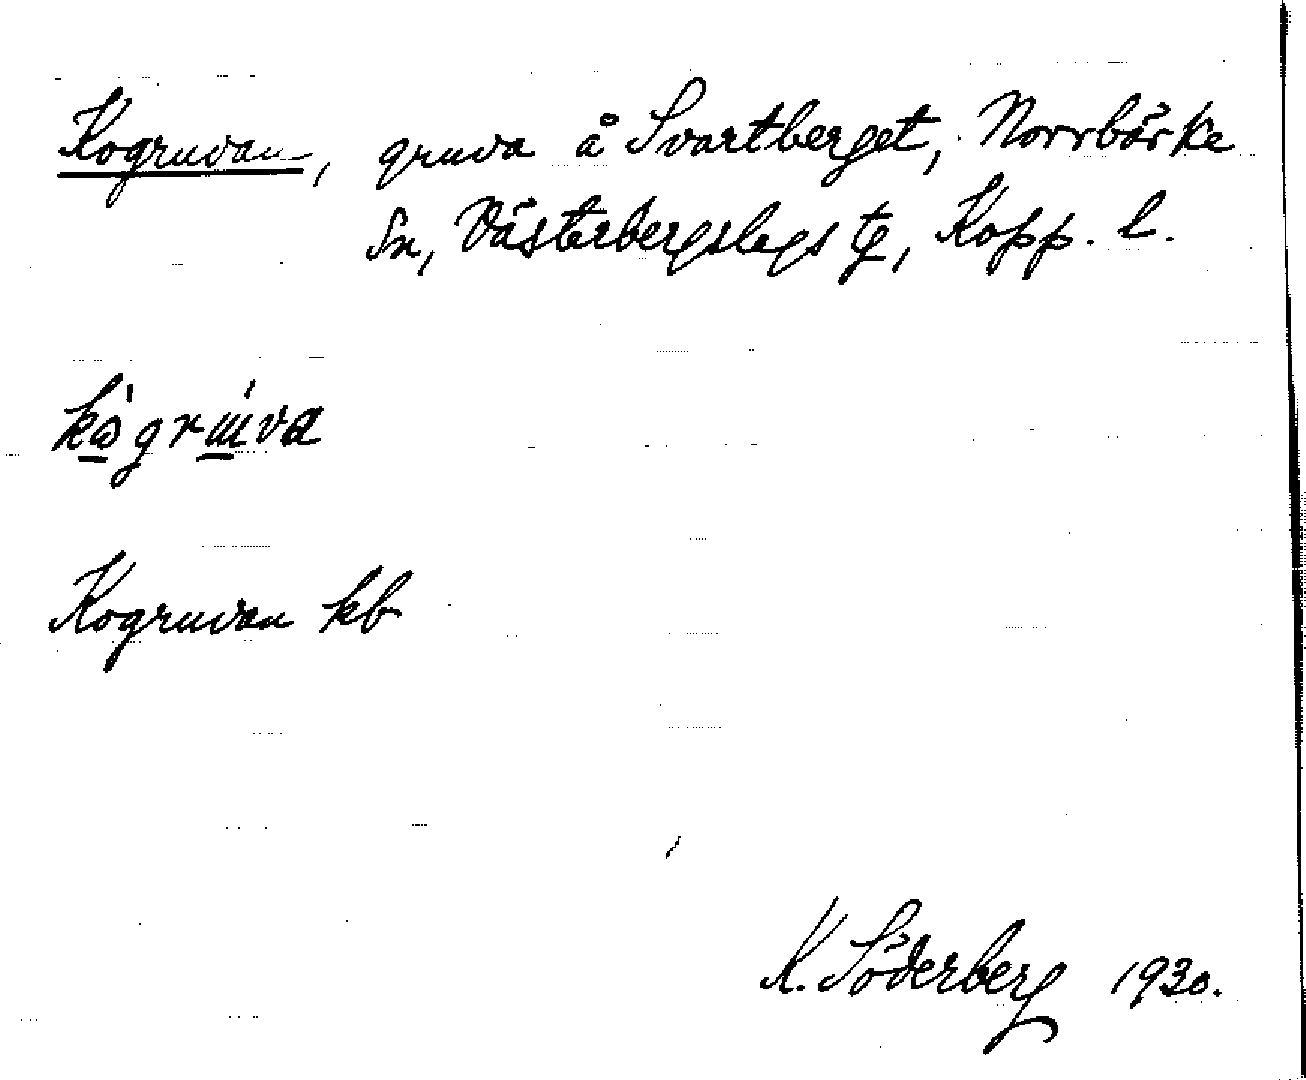 Kogruvan, gruva å Svartberget, Norrbärke
Sn, Västerbergslags tg, Kopp. l.
Kogruvan kb
K. Söderberg 1930.